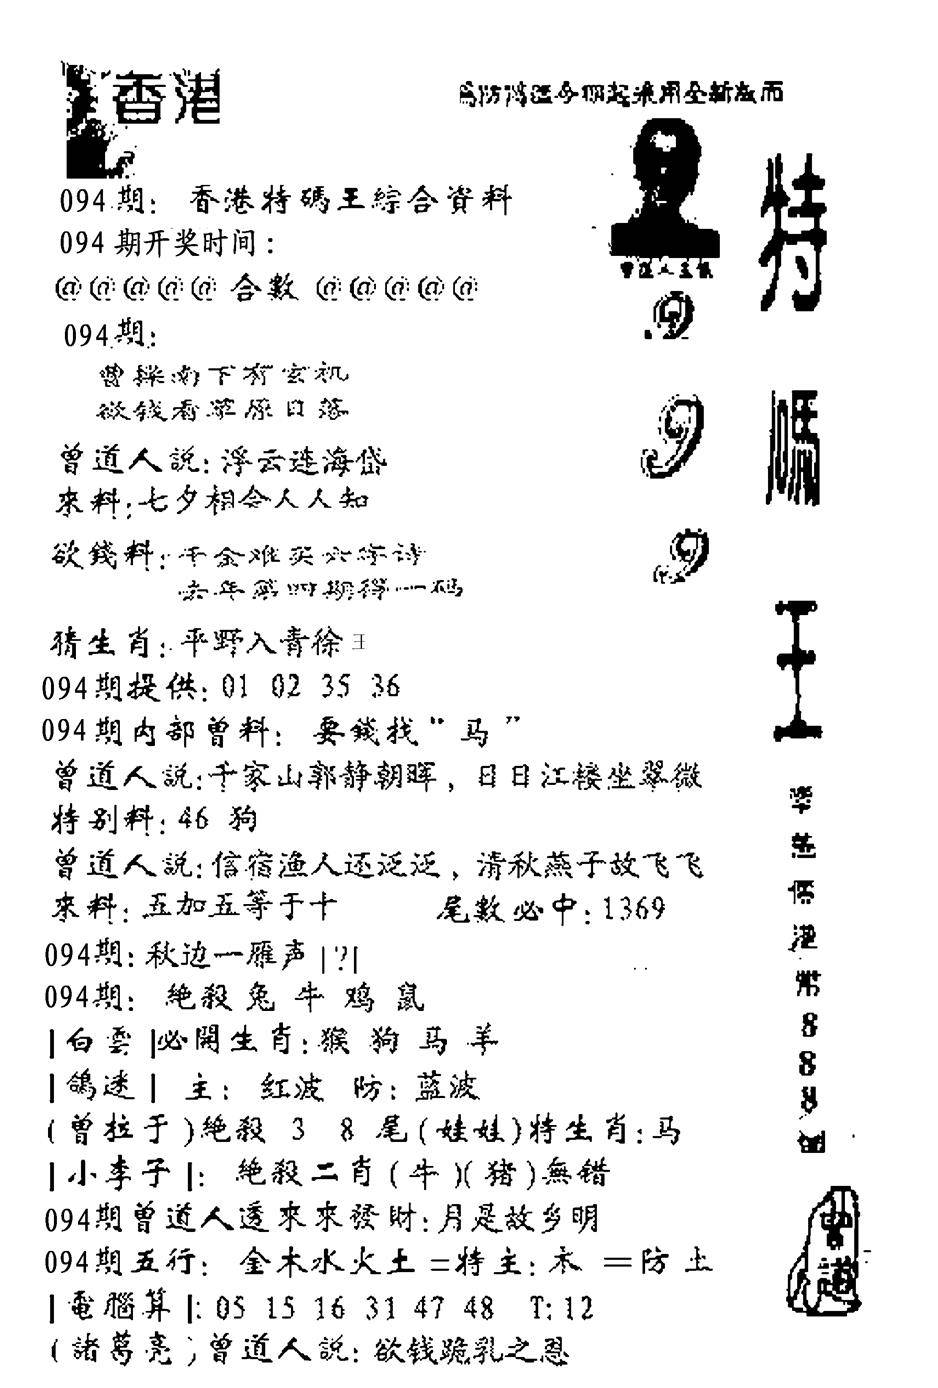 香港
094期：香港特碼王綜合資料
094期开奖时间：
@@@@@ 合數 @@@@@
094期:
曹操南下有玄机
欲钱看草原日落
曾道人説：浮云连海岱
來料：七夕相会人人知
欲錢料：千金难买六字诗
去年第四期得一码
猜生肖：平野入青徐 王
094期提供：01 02 35 36
094期内部曾料： 要錢找“马”
曾道人説：千家山郭静朝晖，日日江楼坐翠微
特别料：46 狗
曾道人説：信宿渔人还泛泛，清秋燕子故飞飞
來料：五加五等于十 尾數必中：1369
094期：秋边一雁声 |?|
094期： 絶殺 兔 牛 鸡 鼠
|白雲|必開生肖：猴 狗 马 羊
|鴿迷| 主： 红波 防：蓝波
(曾拉于)絶殺 3 8 尾(娃娃)特生肖：马
|小李子|： 絶殺二肖(牛)(猪)無错
094期曾道人透來來發財：月是故乡明
094期五行： 金木水火土=特主：木 =防 土
|電腦算|：05 15 16 31 47 48 T:12
(諸葛亮)曾道人説：欲钱跪乳之恩
曾道人主供
特
碼
王
9
9
9
港幣888
曾道